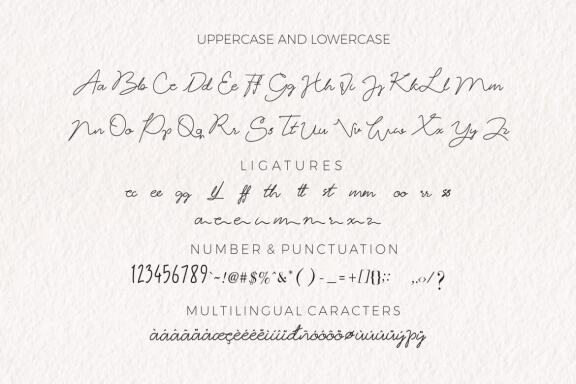 UPPERCASE AND LOWERCASE
Aa Bb Cc Dd Ee Ff Gg Hh Ii Jj Kk Ll Mm
Nn Oo Pp Qq Rr Ss Tt Uu Vv Ww Xx Yy Zz
LIGATURES
cc ee gg ll ff th tt st mm oo rr ss
a c e i m n r x z
NUMBER & PUNCTUATION
123456789`~!@#$%^&*()-_=+[]{};:,.‹›/?
MULTILINGUAL CARACTERS
àáâãäåæçèéêëìíîïđñòóôõöøùúûüýþÿ